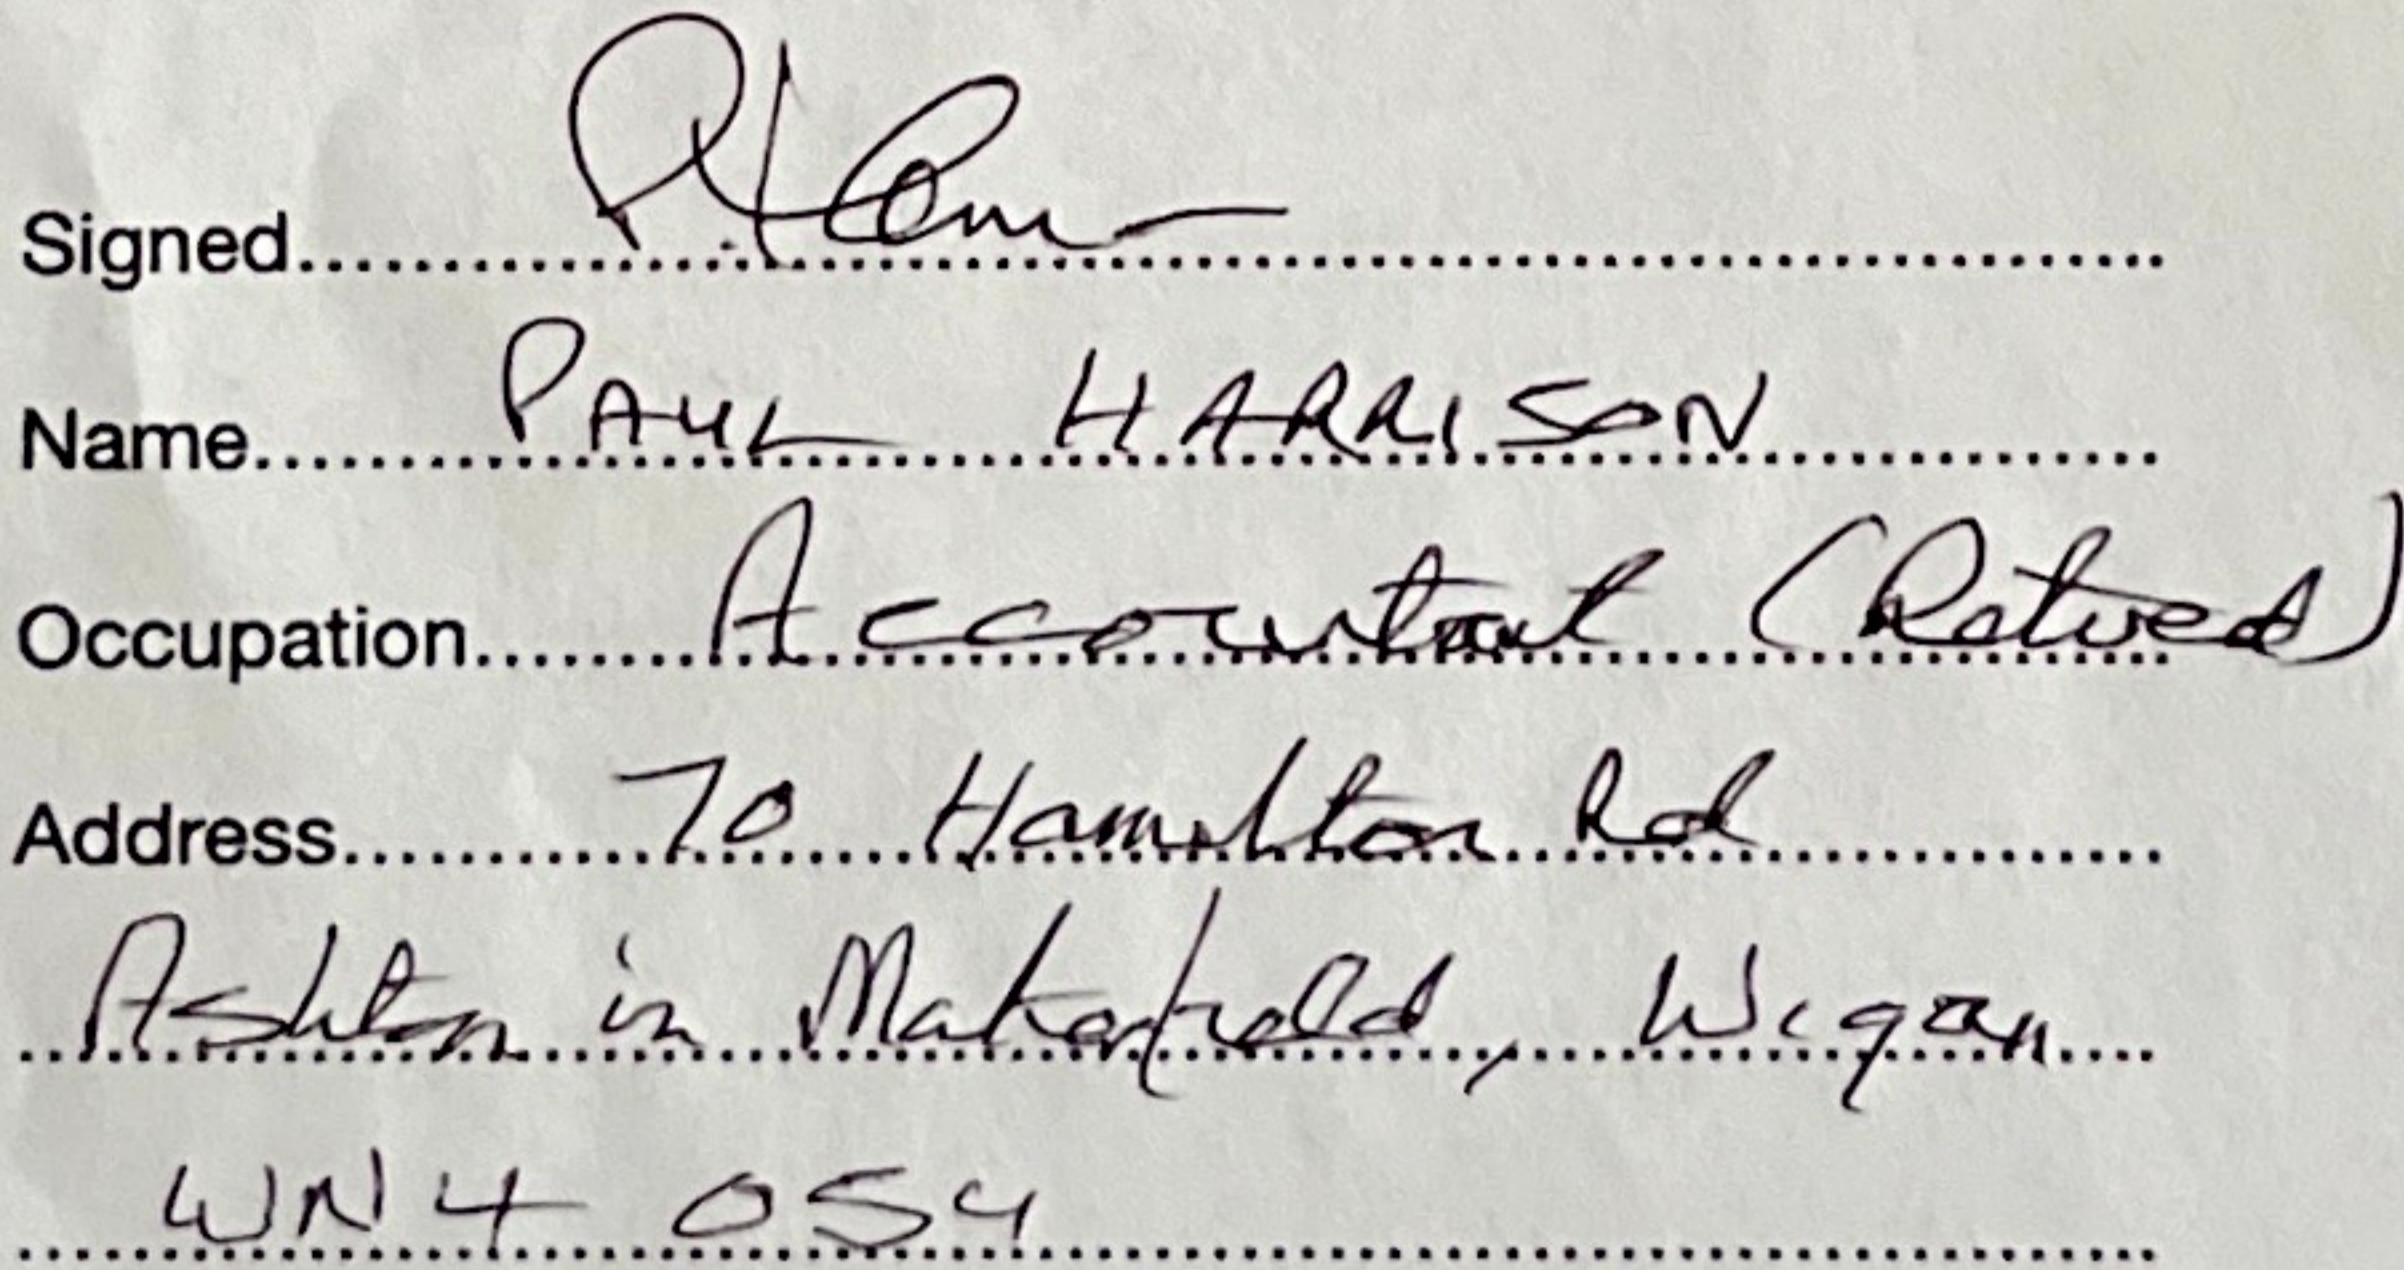 Signed
Name PAUL HARRISON
Occupation Accountant (Retired)
Address 70 Hamilton Rd
Ashton in Makerfield, Wigan
WN4 0SU